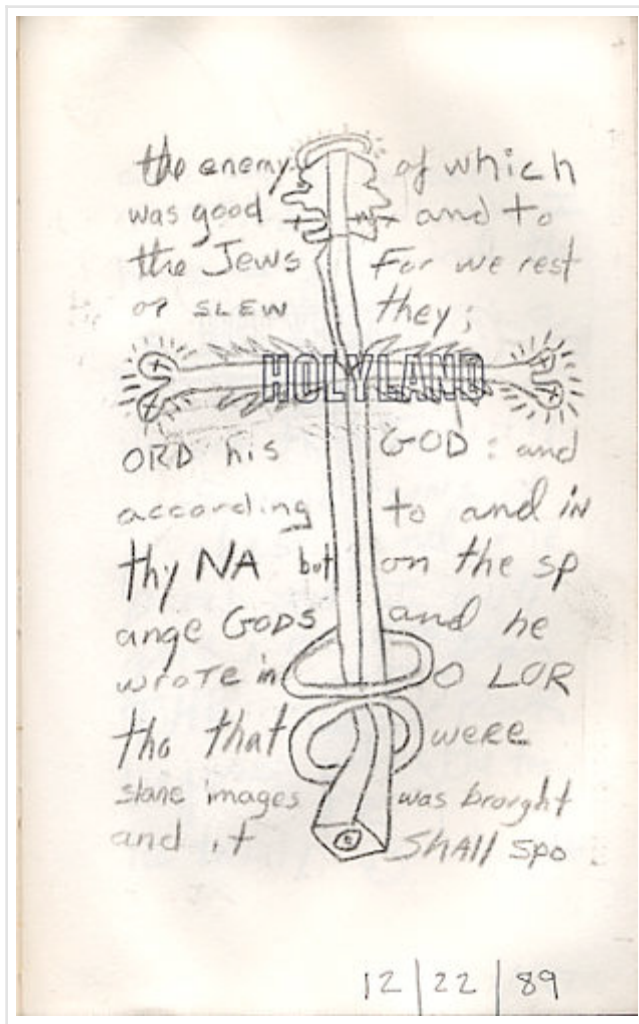 the enemy of which
was good and to
the Jews For we rest
or SLEW they;
HOLYLAND
ORD his GOD: and
according to and in
thy NA but on the sp
ange GODS and he
wrote in O LOR
tho that were
slane images was brought
and it SHAll spo
12/22/89